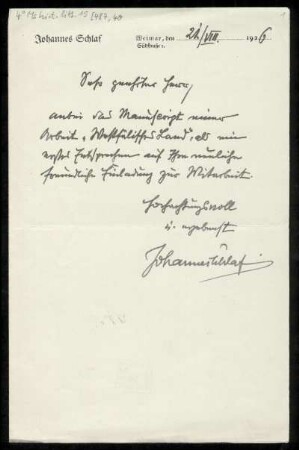 Johannes Schlaf
Weimar, den 21/VIII. 1926
Südbusch
Sehr geehrter Herr,
anbei das Manuscript meiner
Arbeit „Westfälisches Land", als ein
erstes Entsprechen auf Ihre neuliche
freundliche Einladung zur Mitarbeit.
Hochachtungsvoll
u. ergebenst
Johannes Schlaf